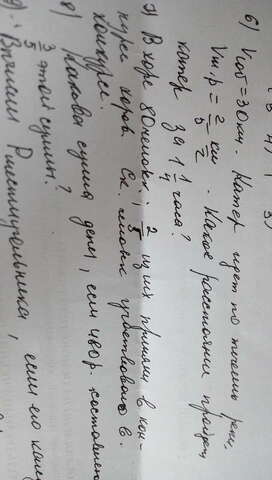 6) Vсоб = 30 км. Катер идет по течению реки.
Vт.р = 2/5 км. Какое расстояние пройдет
катер за 1 1/4 часа?
7) В хоре 80 человек; 2/5 из них приняли в кон-
курсе хоров. Ск. человек участвовало в
конкурсе.
8) Какова сумма денег, если составляет
3/5 этой суммы?
9) прямоугольника, если его